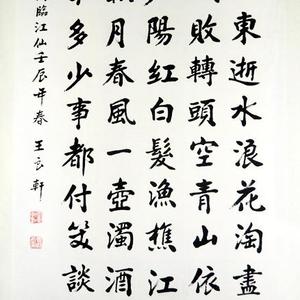 東逝水浪花淘盡
敗轉頭空青山依
陽紅白髮漁樵江
月春風一壺濁酒
多少事都付笑談
臨江仙壬辰年春 王 軒